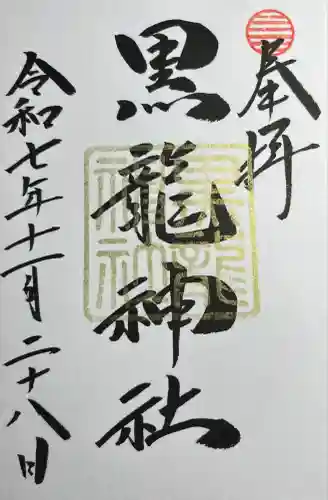 奉拝
黒龍神社
令和七年十一月二十八日